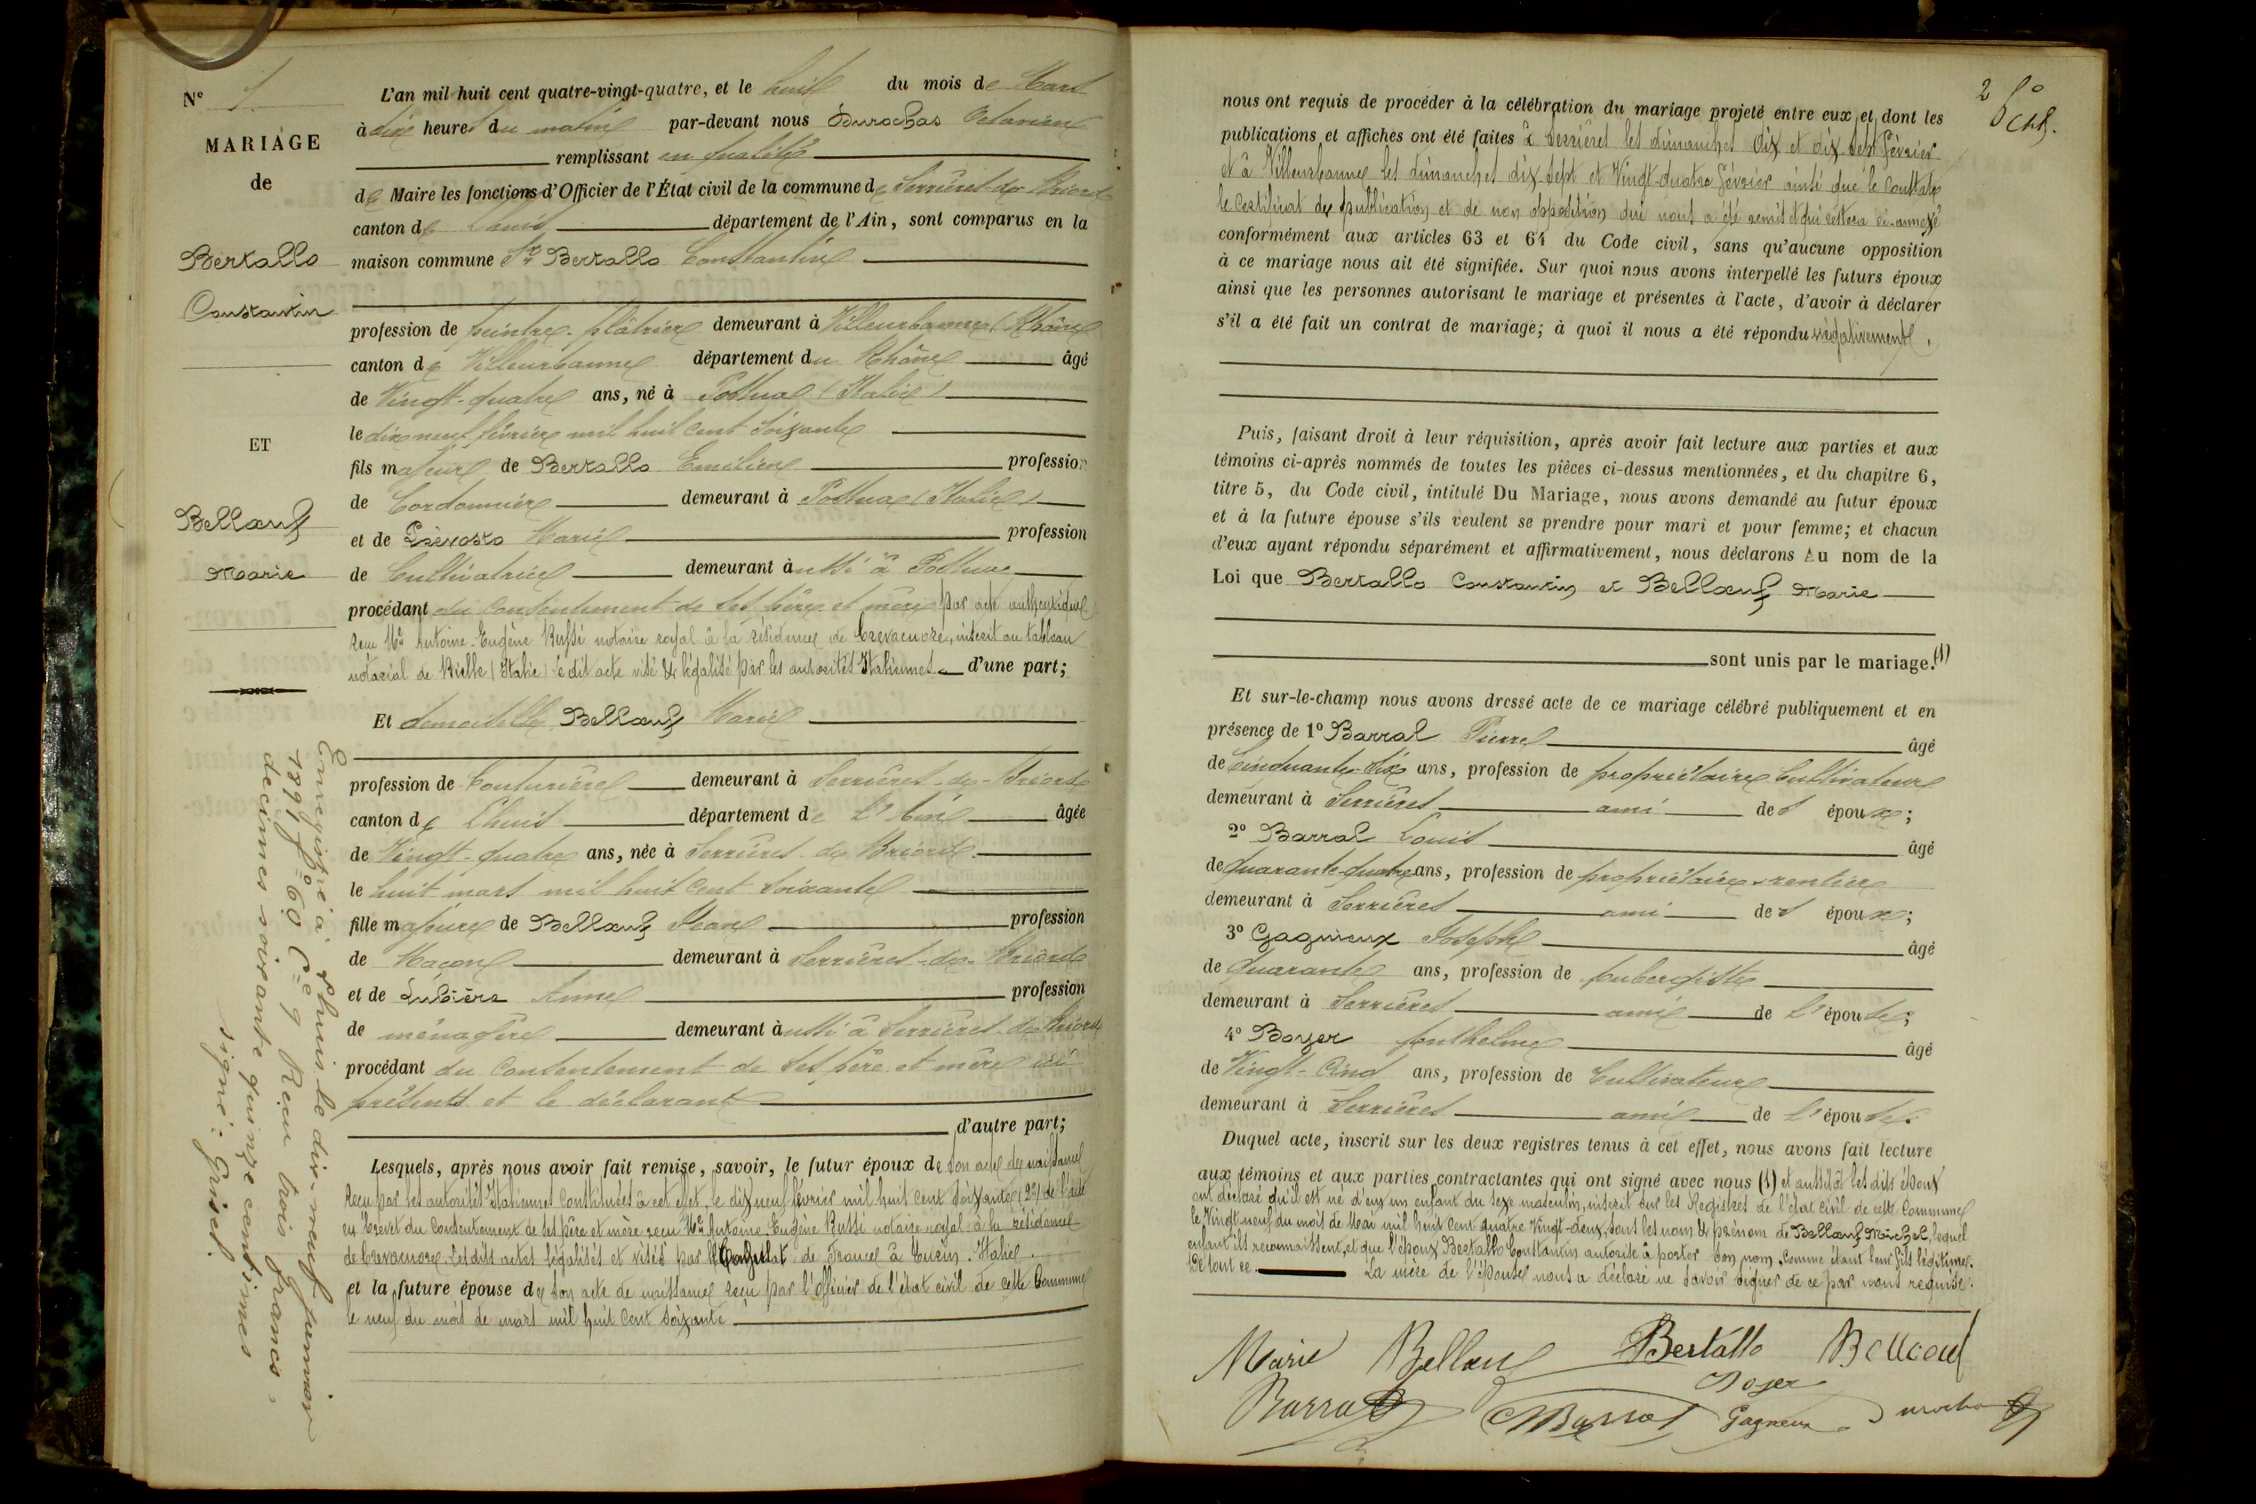 N° 1
MARIAGE
de
Bertallo
Constantin
ET
Bellœuf
Marie
Enregistré à Lhuis le dix-neuf janvier
1891 f° 60 Ce 9 Reçu trois francs
décimes soixante quinze centimes
signé: Grisel.
L'an mil huit cent quatre-vingt-quatre, et le huit du mois de Mars
à dix heures du matin par-devant nous Durochas Octavien
remplissant en qualité
de Maire les fonctions d'Officier de l'État civil de la commune de Serrières-de-Briord
canton de Lhuis département de l'Ain, sont comparus en la
maison commune Sr Bertallo Constantin
profession de peintre-plâtrier demeurant à Villeurbanne (Rhône
canton de Villeurbanne département du Rhône âgé
de Vingt-quatre ans, né à Postua (Italie)
le dix neuf février mil huit cent soixante
fils majeur de Bertallo Emilien profession
de Cordonnier demeurant à Postua (Italie)
et de Prévosto Marie profession
de Cultivatrice demeurant aussi à Postua
procédant du consentement de ses père et mère par acte authentique
reçu Me Antoine-Eugène Russi notaire royal à la résidence de Crevacuore, inscrit au tableau
notarial de Bielle (Italie) le dit acte visé & légalisé par les autorités Italiennes d'une part;
Et demoiselle Bellœuf Marie
profession de Couturière demeurant à Serrières-de-Briord
canton de Lhuis département de l'Ain âgée
de Vingt-quatre ans, née à Serrières-de-Briord
le huit mars mil huit cent soixante
fille majeure de Bellœuf Jean profession
de Maçon demeurant à Serrières-de-Briord
et de Lubière Anne profession
de ménagère demeurant aussi à Serrières-de-Briord
procédant du consentement de ses père et mère ici
présents et le déclarant
d'autre part;
Lesquels, après nous avoir fait remise, savoir, le futur époux de son acte de naissance
reçu par les autorités Italiennes constituées à cet effet, le dix neuf février mil huit cent soixante (2°) de l'acte
en brevet du consentement de ses père et mère reçu Me Antoine-Eugène Russi notaire royal à la résidence
de Crevacuore. Les dits actes légalisés et visés par le Consulat de France à Turin. Italie.
et la future épouse de son acte de naissance reçu par l'officier de l'état civil de cette Commune
le neuf du mois de mars mil huit cent soixante
2
nous ont requis de procéder à la célébration du mariage projeté entre eux et dont les
publications et affiches ont été faites à Serrières les dimanches dix et dix sept Février
et à Villeurbanne les dimanches dix-sept et Vingt-quatre Février ainsi que le constate
le certificat de publication et de non opposition qui nous a été remis et qui restera ci-annexé
conformément aux articles 63 et 64 du Code civil, sans qu'aucune opposition
à ce mariage nous ait été signifiée. Sur quoi nous avons interpellé les futurs époux
ainsi que les personnes autorisant le mariage et présentes à l'acte, d'avoir à déclarer
s'il a été fait un contrat de mariage; à quoi il nous a été répondu négativement.
Puis, faisant droit à leur réquisition, après avoir fait lecture aux parties et aux
témoins ci-après nommés de toutes les pièces ci-dessus mentionnées, et du chapitre 6,
titre 5, du Code civil, intitulé Du Mariage, nous avons demandé au futur époux
et à la future épouse s'ils veulent se prendre pour mari et pour femme; et chacun
d'eux ayant répondu séparément et affirmativement, nous déclarons Au nom de la
Loi que Bertallo Constantin et Bellœuf Marie
sont unis par le mariage. (1)
Et sur-le-champ nous avons dressé acte de ce mariage célébré publiquement et en
présence de 1° Barral Pierre âgé
de Cinquante-six ans, profession de propriétaire Cultivateur
demeurant à Serrières ami des époux;
2° Barral Louis âgé
de quarante-quatre ans, profession de propriétaire-rentier
demeurant à Serrières ami des époux;
3° Gagnieux Joseph âgé
de Quarante ans, profession de Aubergiste
demeurant à Serrières ami de l'épouse;
4° Boyer Anthelme âgé
de Vingt-Cinq ans, profession de Cultivateur
demeurant à Serrières ami de l'épouse.
Duquel acte, inscrit sur les deux registres tenus à cet effet, nous avons fait lecture
aux témoins et aux parties contractantes qui ont signé avec nous (1) et aussitôt les dits époux
ont déclaré qu'il est né d'eux un enfant du sexe masculin, inscrit sur les Registres de l'état civil de cette Commune
le Vingt-neuf du mois de Mai mil huit cent quatre Vingt-deux, sous les nom & prénom de Bellœuf Michel, lequel
enfant ils reconnaissent, et que l'époux Bertallo Constantin autorise à porter son nom, comme étant leur fils légitime.
De tout ce La mère de l'épouse nous a déclaré ne savoir signer de ce par nous requise.
Marie Bellœuf Bertallo Bellœuf
Boyer
Barral Barral Gagneux Durochas